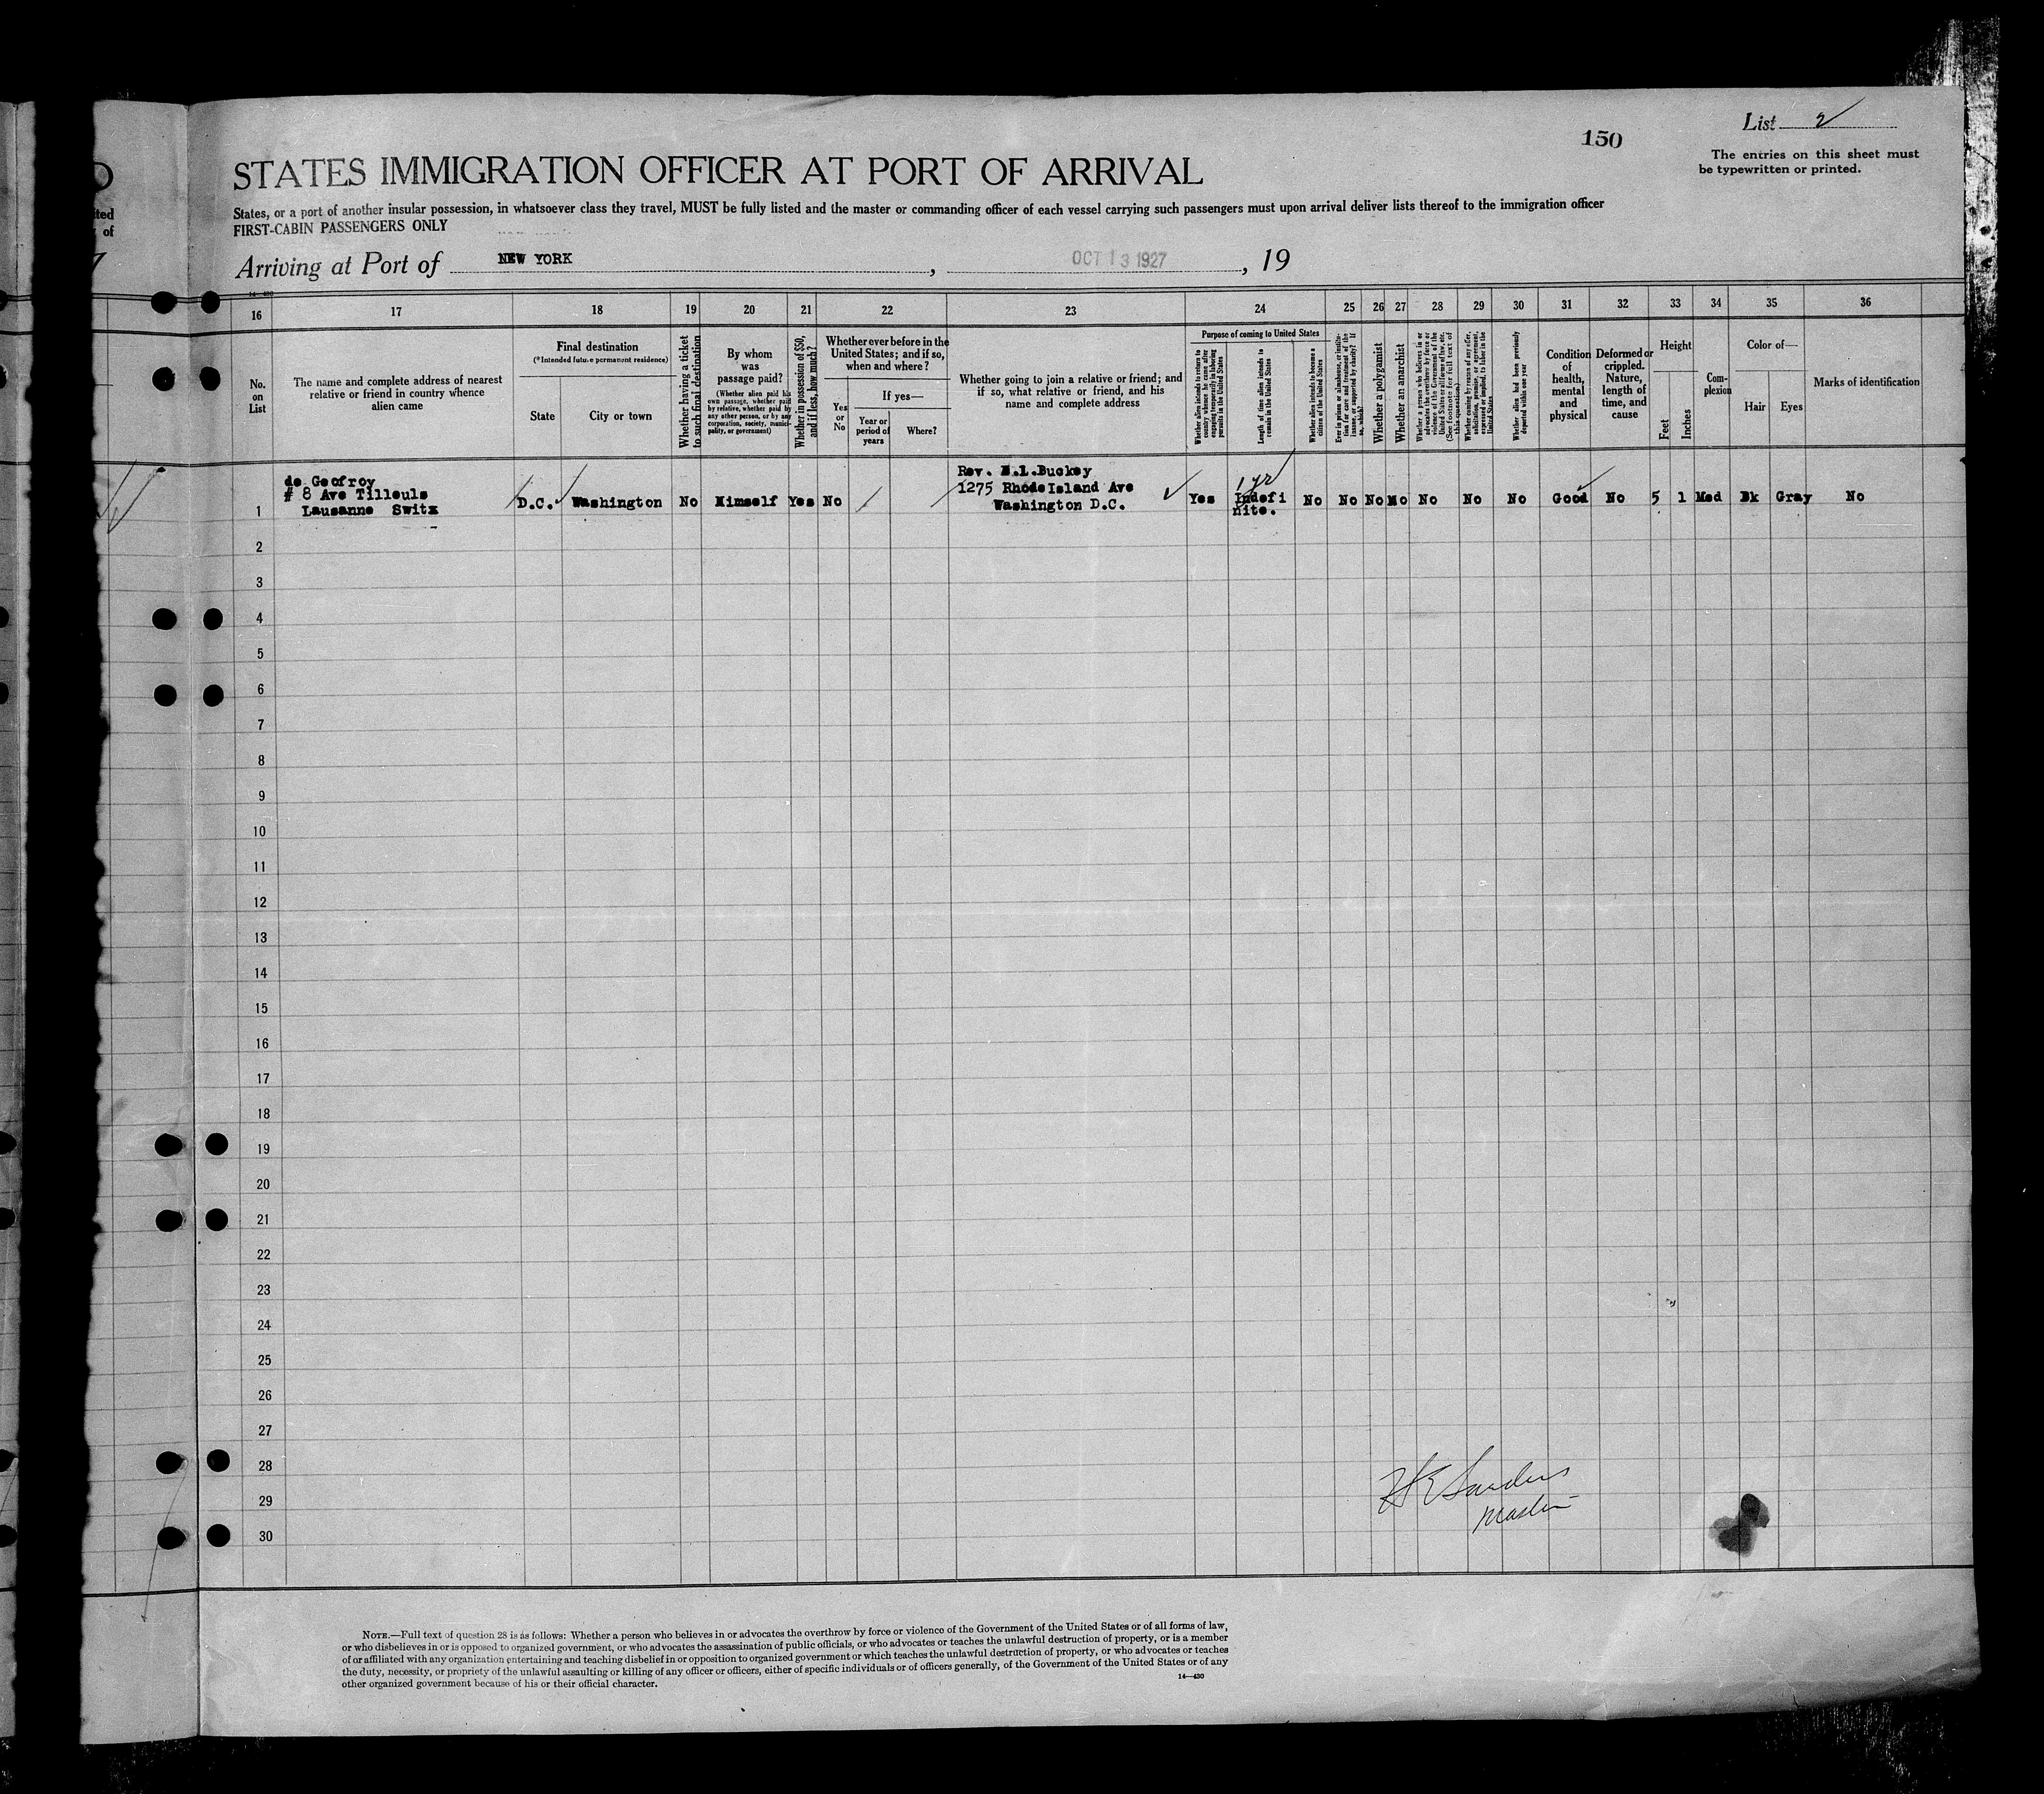 List 2
150
The entries on this sheet must
be typewritten or printed.
STATES IMMIGRATION OFFICER AT PORT OF ARRIVAL
States, or a port of another insular possession, in whatsoever class they travel, MUST be fully listed and the master or commanding officer of each vessel carrying such passengers must upon arrival deliver lists thereof to the immigration officer
FIRST-CABIN PASSENGERS ONLY
Arriving at Port of NEW YORK, OCT 13 1927, 19
14—430
16 17 18 19 20 21 22 23 24 25 26 27 28 29 30 31 32 33 34 35 36
No.
on
List
The name and complete address of nearest
relative or friend in country whence
alien came
Final destination
(*Intended future permanent residence)
State
City or town
Whether having a ticket
to such final destination
By whom
was
passage paid?
(Whether alien paid his
own passage, whether paid
by relative, whether paid by
any other person, or by any
corporation, society, munici-
pality, or government)
Whether in possession of $50,
and if less, how much?
Whether ever before in the
United States; and if so,
when and where?
Yes
or
No
If yes—
Year or
period of
years
Where?
Whether going to join a relative or friend; and
if so, what relative or friend, and his
name and complete address
Purpose of coming to United States
Whether alien intends to return to
country whence he came after
engaging temporarily in laboring
pursuits in the United States
Length of time alien intends to
remain in the United States
Whether alien intends to become a
citizen of the United States
Ever in prison or almshouse, or institu-
tion for care and treatment of the
insane, or supported by charity? If
so, which?
Whether a polygamist
Whether an anarchist
Whether a person who believes in or
advocates the overthrow by force or
violence of the Government of the
United States or all forms of law, etc.
(See footnote for full text of
this question.)
Whether coming by reason of any offer,
solicitation, promise, or agreement,
expressed or implied, to labor in the
United States
Whether alien had been previously
deported within one year
Condition
of
health,
mental
and
physical
Deformed or
crippled.
Nature,
length of
time, and
cause
Height
Feet
Inches
Com-
plexion
Color of—
Hair
Eyes
Marks of identification
de Geofroy
# 8 Ave Tilleuls
Lausanne Switz
1 D.C. Washington No Himself Yes No
Rev. E.L.Buckey
1275 Rhode Island Ave
Washington D.C.
Yes
1 yr
Indefi
nite.
No No No No No No No Good No 5 1 Med Bk Gray No
2
3
4
5
6
7
8
9
10
11
12
13
14
15
16
17
18
19
20
21
22
23
24
25
26
27
28
29
30
H E Sanders
Master
NOTE.—Full text of question 28 is as follows: Whether a person who believes in or advocates the overthrow by force or violence of the Government of the United States or of all forms of law,
or who disbelieves in or is opposed to organized government, or who advocates the assassination of public officials, or who advocates or teaches the unlawful destruction of property, or is a member
of or affiliated with any organization entertaining and teaching disbelief in or opposition to organized government or which teaches the unlawful destruction of property, or who advocates or teaches
the duty, necessity, or propriety of the unlawful assaulting or killing of any officer or officers, either of specific individuals or of officers generally, of the Government of the United States or of any
other organized government because of his or their official character.
14—430